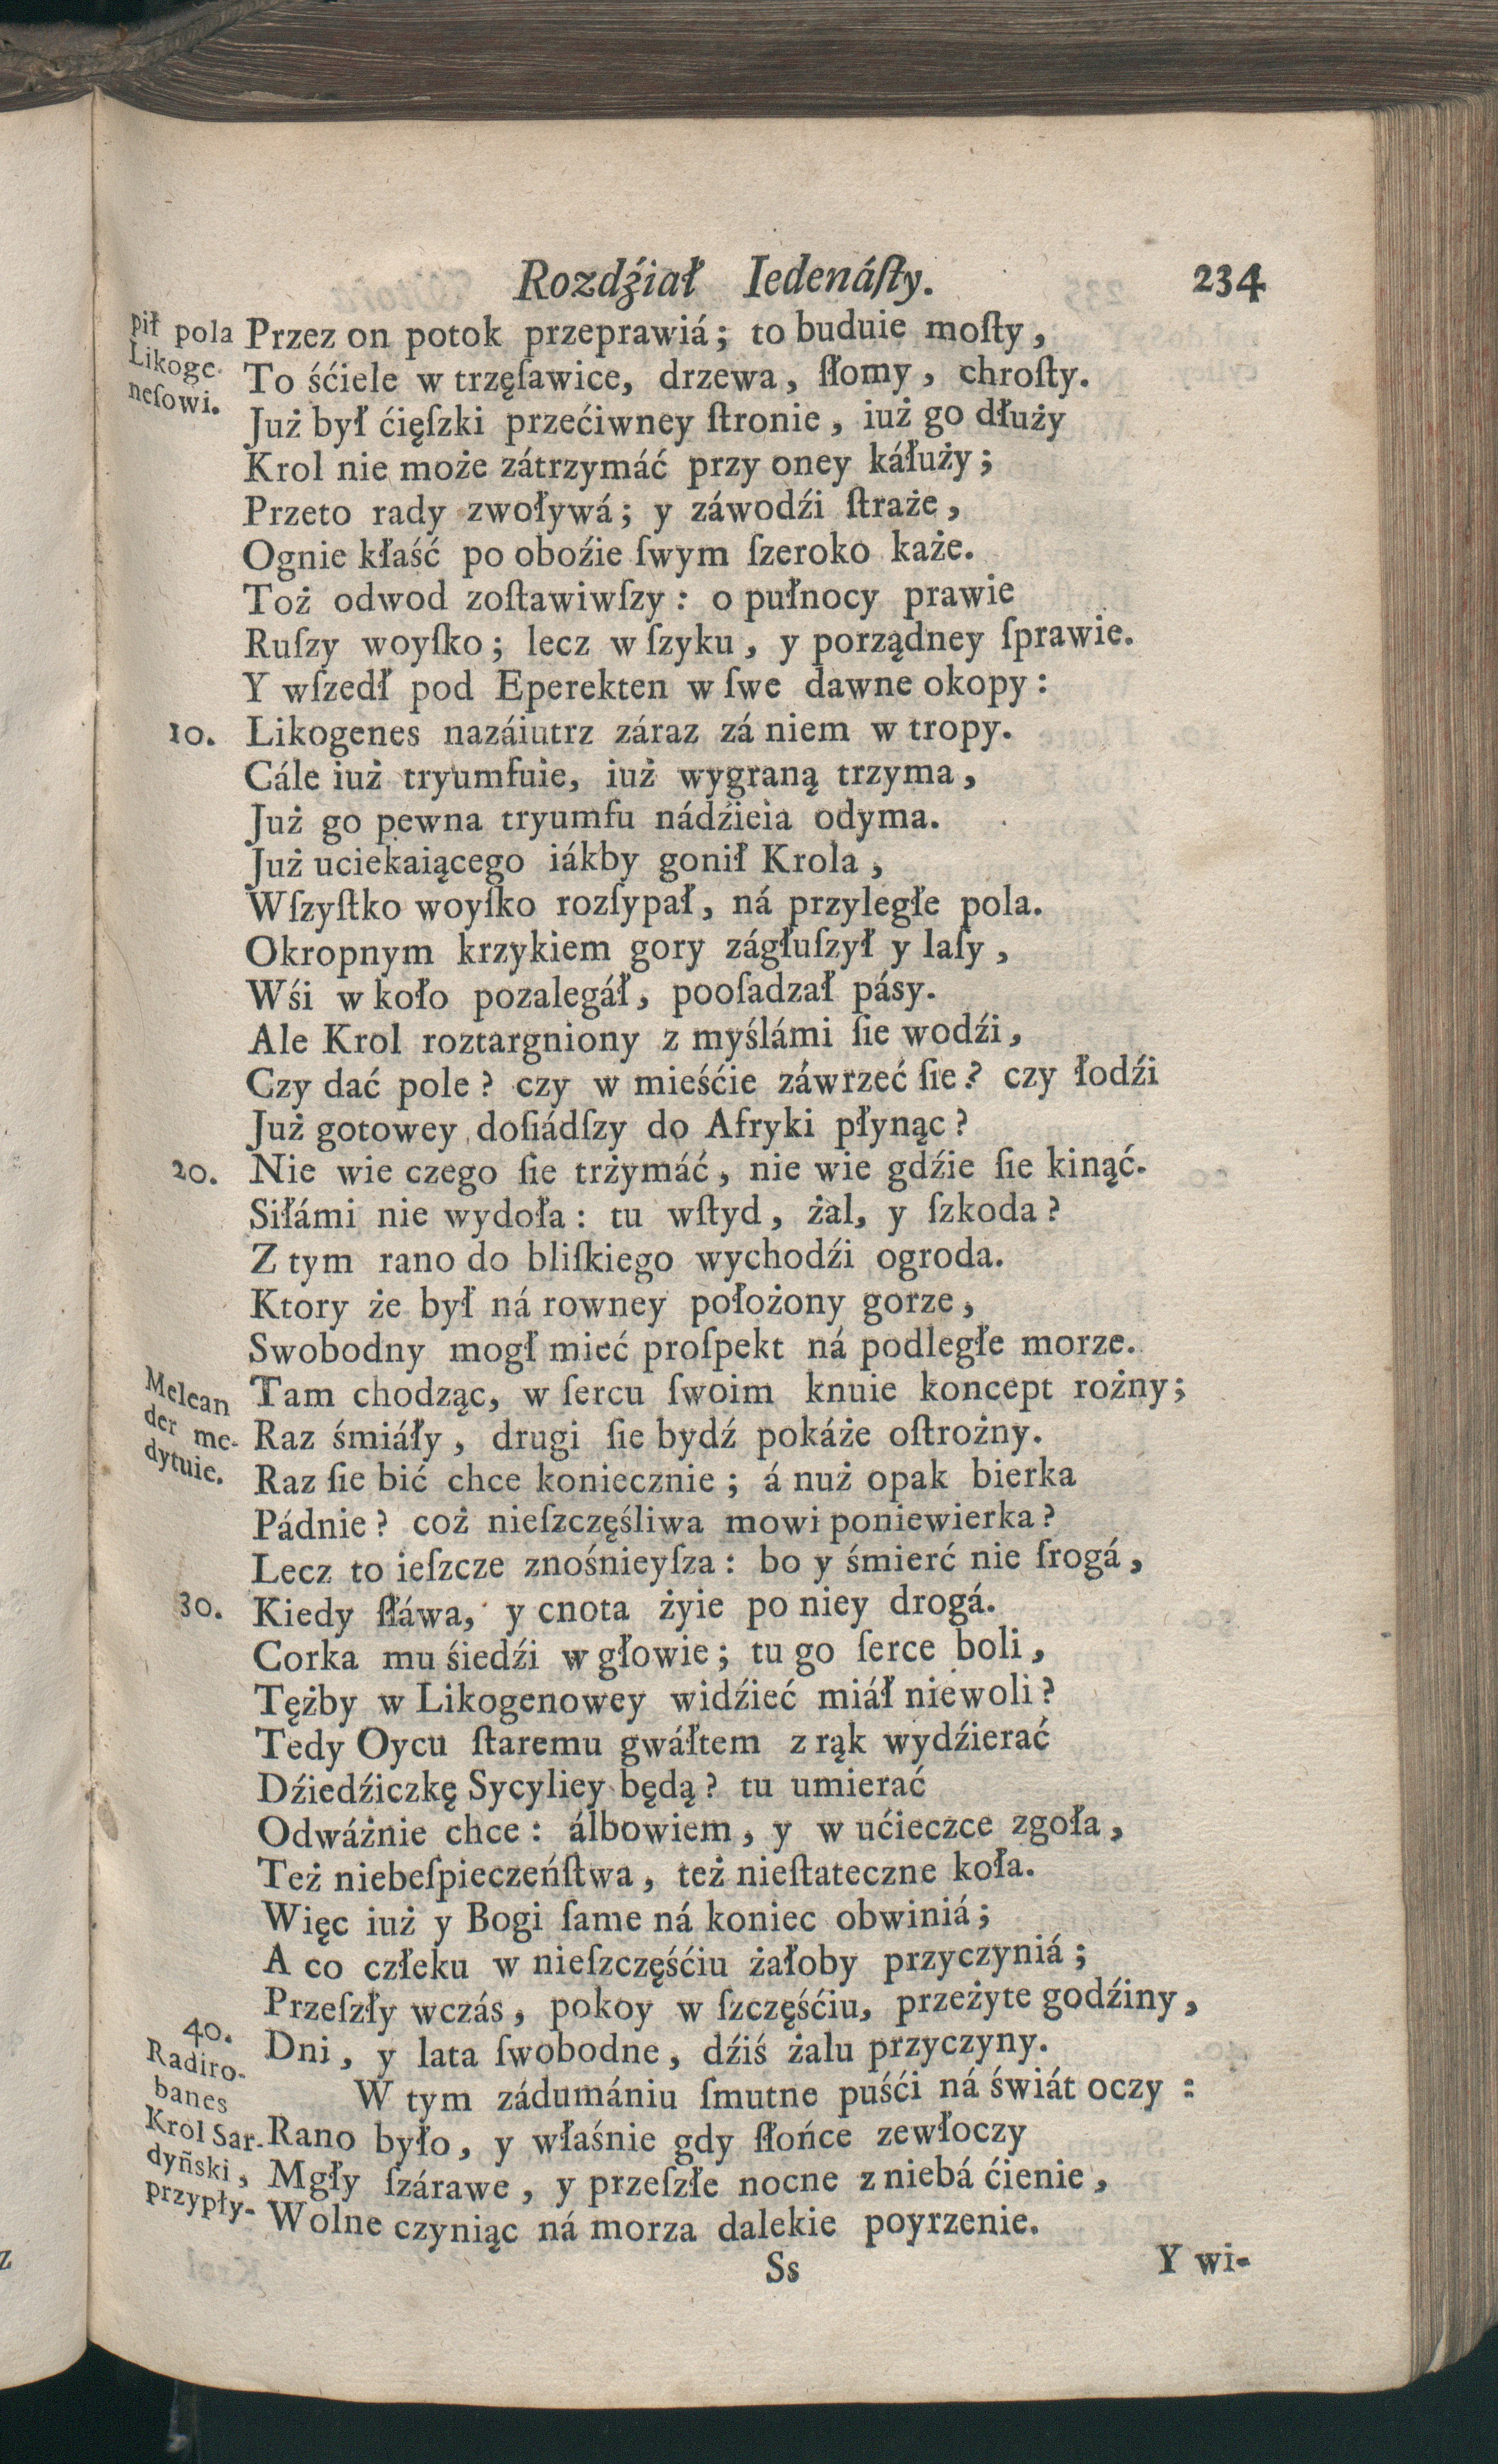 Rozdźiał Iedenáſty. 234
pił pola
Likoge-
neſowi.
Przez on potok przeprawiá; to buduie moſty,
To śćiele w trzęſawice, drzewa, ſłomy, chroſty.
Już był ćięſzki przećiwney ſtronie, iuż go dłuży
Krol nie może zátrzymáć przy oney káłuży;
Przeto rady zwoływá; y záwodźi ſtraże,
Ognie kłaść po oboźie ſwym ſzeroko każe.
Toż odwod zoſtawiwſzy: o pułnocy prawie
Ruſzy woyſko; lecz w ſzyku, y porządney ſprawie.
Y wſzedł pod Eperekten w ſwe dawne okopy:
10. Likogenes nazáiutrz záraz zá niem w tropy.
Cále iuż tryumfuie, iuż wygraną trzyma,
Już go pewna tryumfu nádźieia odyma.
Już uciekaiącego iákby gonił Krola,
Wſzyſtko woyſko rozſypał, ná przyległe pola.
Okropnym krzykiem gory zágłuſzył y laſy,
Wśi w koło pozalegáł, pooſadzał pásy.
Ale Krol roztargniony z myślámi ſie wodźi,
Czy dać pole? czy w mieśćie záwrzeć ſie? czy łodźi
Już gotowey doſiádſzy do Afryki płynąc?
20. Nie wie czego ſie trżymáć, nie wie gdźie ſie kinąć.
Siłámi nie wydoła: tu wſtyd, żal, y ſzkoda?
Z tym rano do bliſkiego wychodźi ogroda.
Ktory że był ná rowney położony gorze,
Swobodny mogł mieć proſpekt ná podległe morze.
Melean
der me-
dytuie.
Tam chodząc, w ſercu ſwoim knuie koncept rożny;
Raz śmiáły, drugi ſie bydź pokáże oſtrożny.
Raz ſie bić chce koniecznie; á nuż opak bierka
Pádnie? coż nieſzczęśliwa mowi poniewierka?
Lecz to ieſzcze znośnieyſza: bo y śmierć nie ſrogá,
30. Kiedy ſłáwa, y cnota żyie po niey drogá.
Corka mu śiedźi w głowie; tu go ſerce boli,
Tężby w Likogenowey widźieć miáł niewoli?
Tedy Oycu ſtaremu gwáłtem z rąk wydźierać
Dźiedźiczkę Sycyliey będą? tu umierać
Odwáżnie chce: álbowiem, y w ućieczce zgoła,
Też niebeſpieczeńſtwa, też nieſtateczne koła.
Więc iuż y Bogi ſame ná koniec obwiniá;
A co człeku w nieſzczęśćiu żałoby przyczyniá;
Przeſzły wczás, pokoy w ſzczęśćiu, przeżyte godźiny,
40. Dni, y lata ſwobodne, dźiś żalu przyczyny.
Radiro-
banes
Krol Sar-
dyñski,
przypły-
W tym zádumániu ſmutne puśći ná świát oczy:
Rano było, y właśnie gdy ſłońce zewłoczy
Mgły ſzárawe, y przeſzłe nocne z niebá ćienie,
Wolne czyniąc ná morza dalekie poyrzenie.
Ss Y wi-